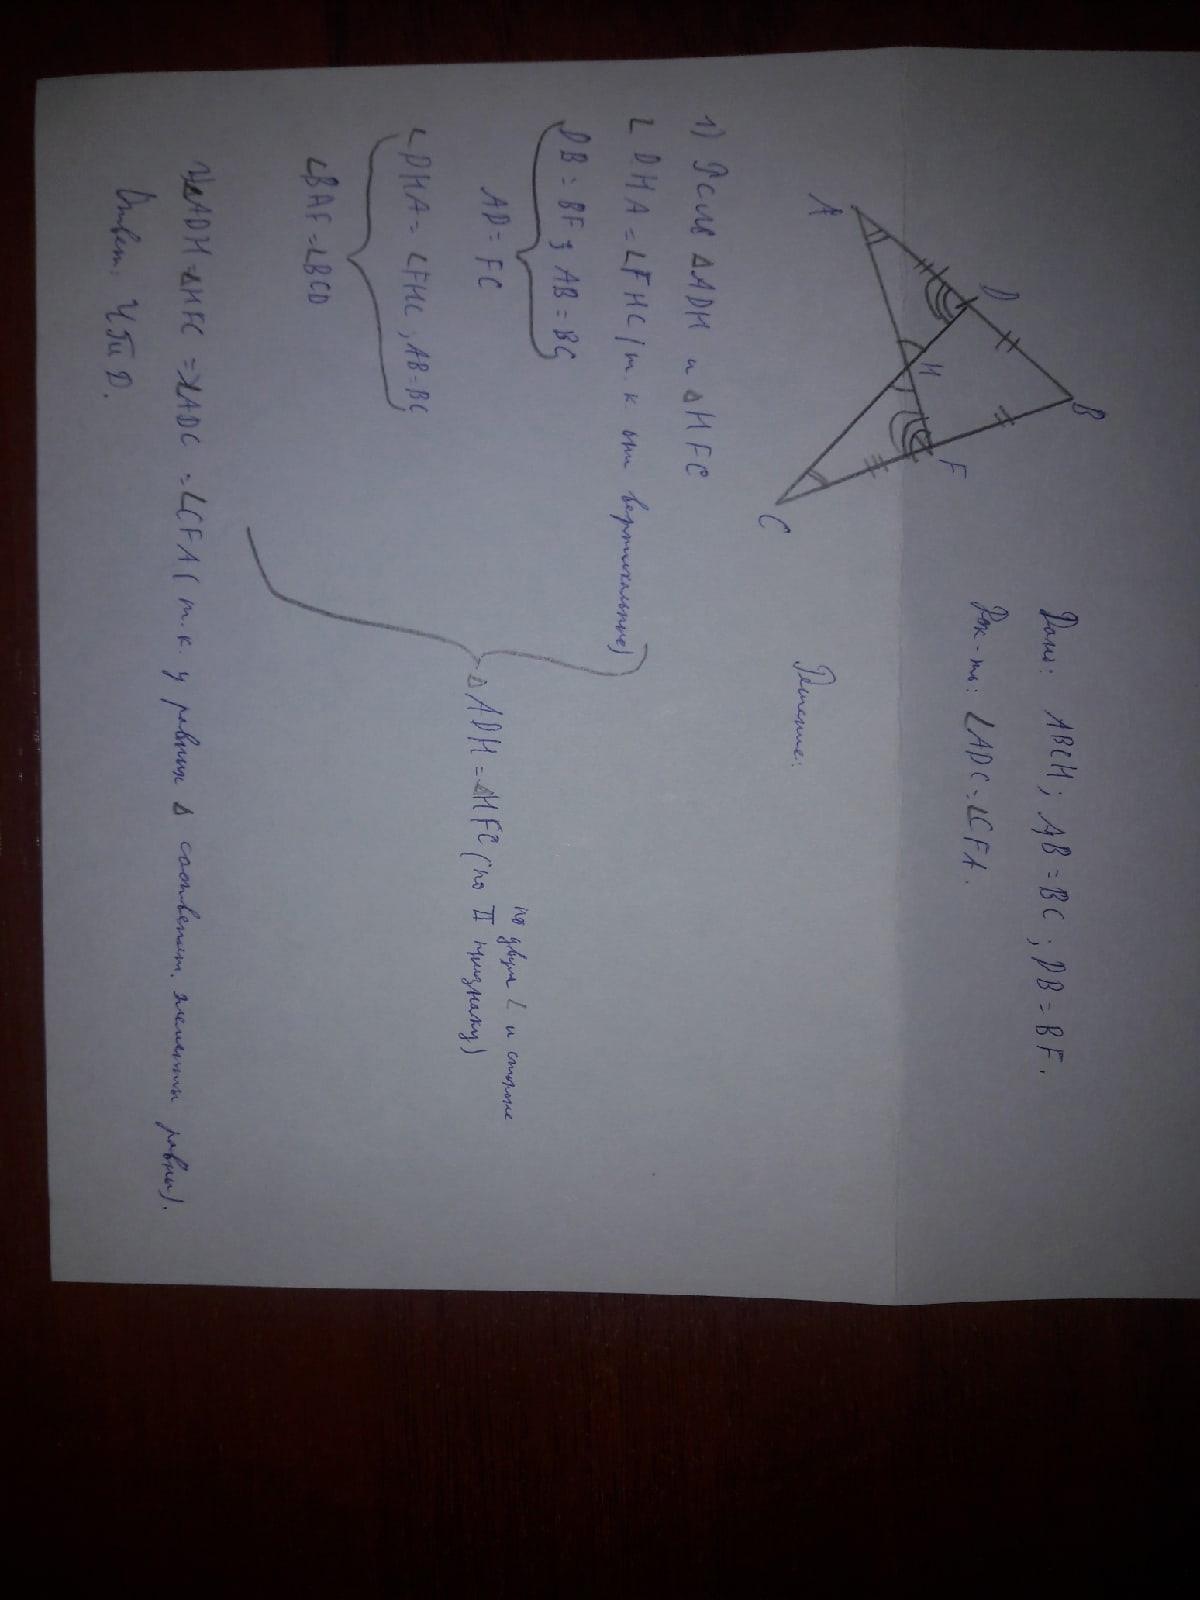 B
D
A
H
F
C
Дано: ABCH; AB = BC; DB = BF.
Док-ть: ∠ADC = ∠CFA.
Решение:
1) Рссм △ADH и △HFC
∠DHA = ∠FHC (т. к они вертикальные)
DB = BF; AB = BC
AD = FC
∠DHA = ∠FHC; AB = BC
∠BAF = ∠BCD
по двум ∠ и стороне
△ADH = △HFC (по II признаку)
△ADH = △HFC => ∠ADC = ∠CFA (т.к. у равных △ соответст. элементы равны).
Ответ: Ч.Т.Д.